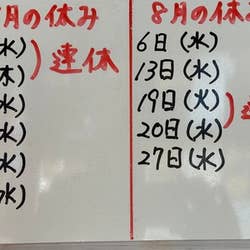 月の休み
水)
木)
連休
水)
水)
水)
水)
8月の休
6日(水)
13日(水)
19日(火)
20日(水)
27日(水)